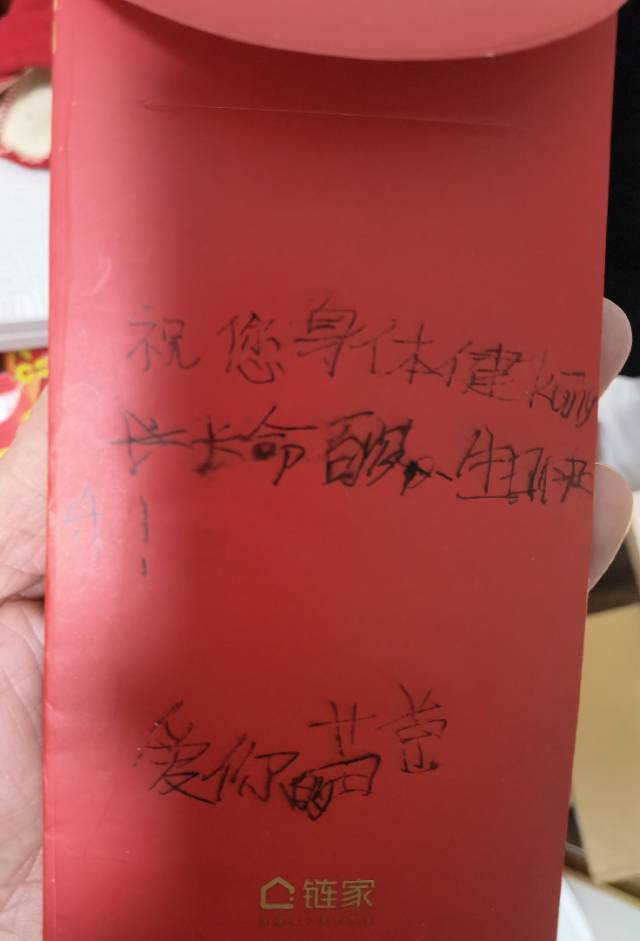 祝您身体健kāng
长命百岁,生日快
乐!
爱你的苗苗
链家